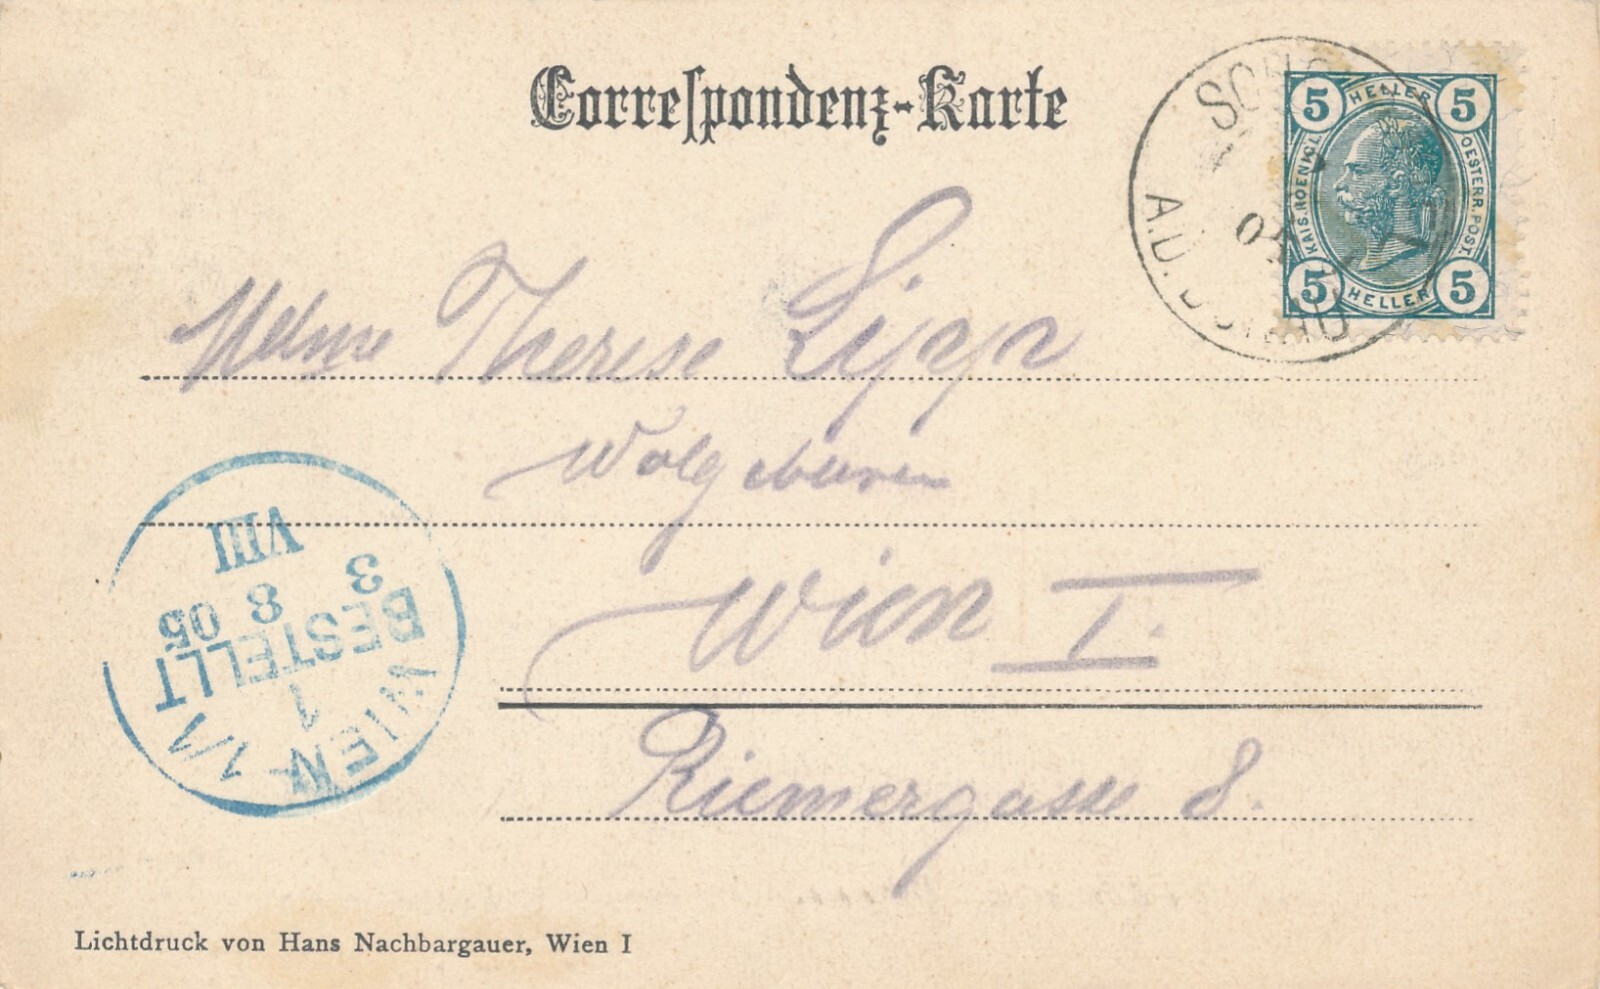 Correspondenz-Karte
5 HELLER 5
KAIS. KOENIGL.
OESTERR. POST.
5 HELLER 5
A.D.
Therese Lipp
Wolgeboren
Wien I.
Riemergasse 8.
WIEN 1/1
1
BESTELLT
3 8 05
VIII
Lichtdruck von Hans Nachbargauer, Wien I